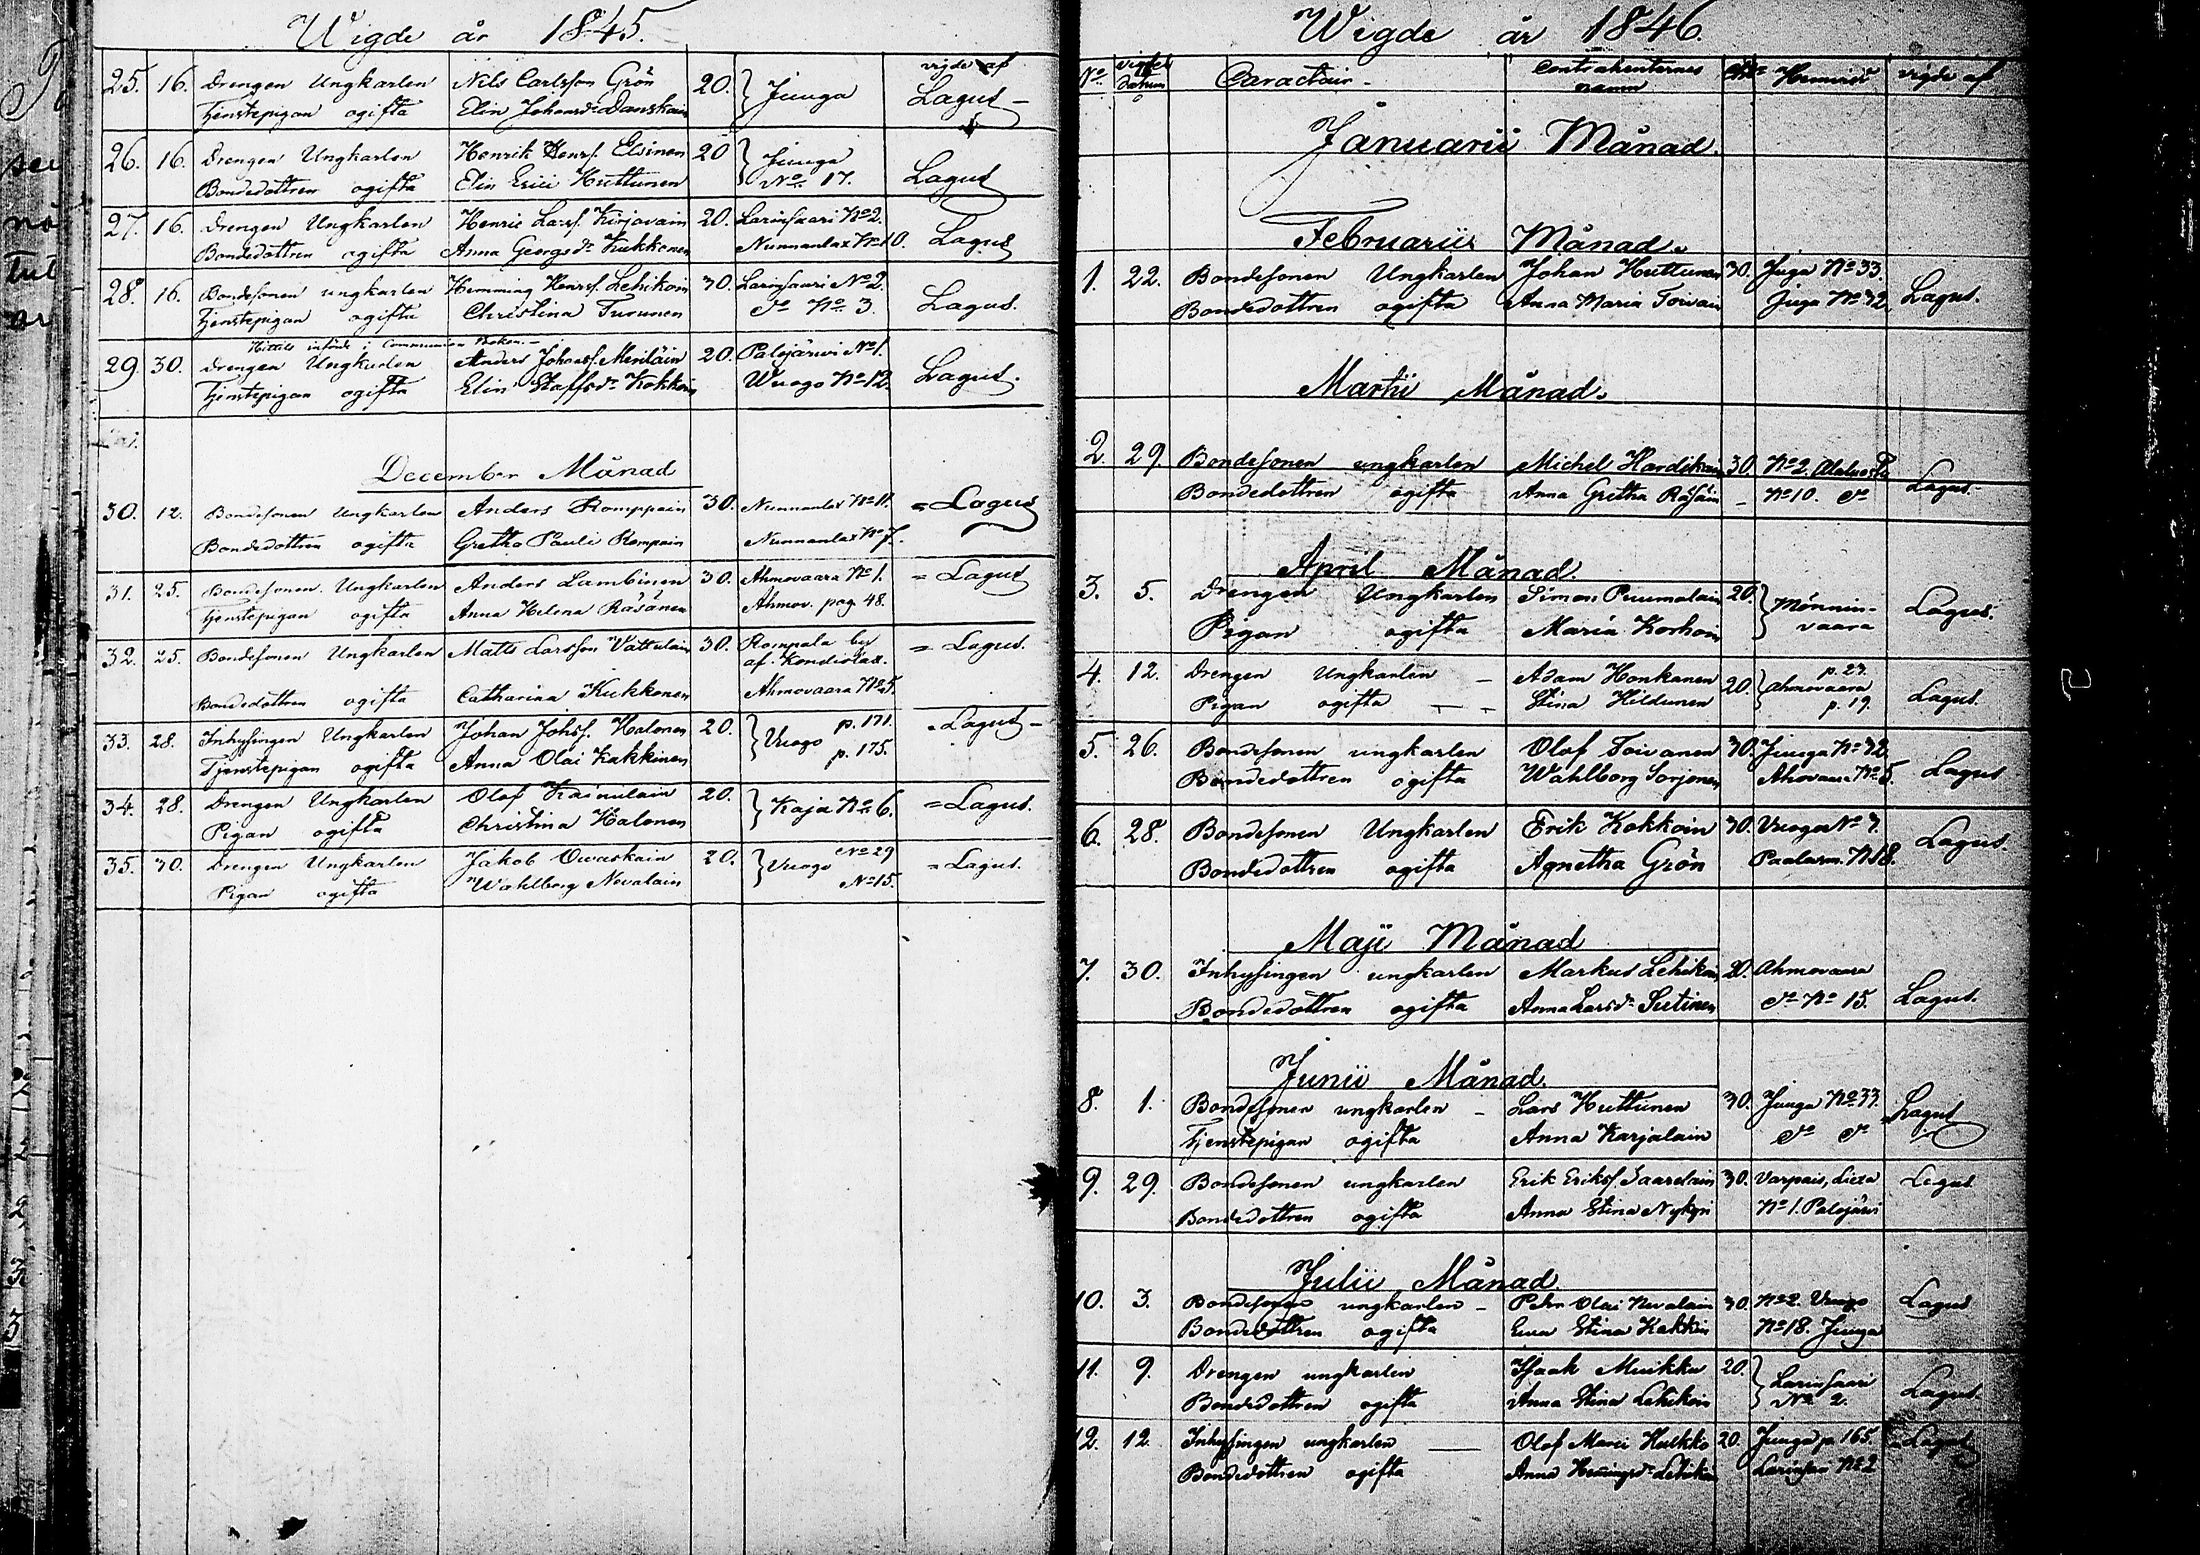 Wigde år 1845.
vigde af
25. 16. Drengen Ungkarlen Nils Carlsson Grön 20. Juuga Lagus
Tjenstepigan ogifta Elin Johansd. Danskain
26. 16. Drengen Ungkarlen Henrik Henrs. Elvinen 20 Juuga Lagus
Bondedottren ogifta Elin Erici Huttunen No. 17.
27. 16. Drengen Ungkarlen Henric Larss. Kirjavain 20. Larinsaari No 2. Lagus
Bondedottren ogifta Anna Georgsdr Kukkonen Nunnanlax No 10.
28. 16. Bondesonen ungkarlen Hemming Henrss. Lehikoin 30. Larinsaari No 2. Lagus.
Tjenstepigan ogifta Christina Turunen do No 3.
Hittils införde i Communion Boken.
29. 30. Drengen Ungkarlen Anders Johanss. Meriläin 20. Palojärwi No 1. Lagus.
Tjenstepigan ogifta Elin Staffsdr Kokkoin Wuogo No 12.
December Månad
30. 12. Bondesonen Ungkarlen Anders Romppain 30. Nunnanlax No 11. = Lagus
Bondedottren ogifta Gretha Pauli Rompain Nunnanlax No 7.
31. 25. Bondesonen Ungkarlen Anders Lambinen 30. Ahmovaara No 1. = Lagus
Tjenstepigan ogifta Anna Helena Räsänen Ahmov. pag 48.
32. 25. Bondesonen Ungkarlen Matts Larsson Vattulain 30. Rompala by = Lagus.
af. Kondiolax.
Bondedottren ogifta Catharina Kukkonen Ahmovaara No 5.
33. 28. Inhysingen Ungkarlen Johan Johss. Halonen 20. Vuogo p. 171. = Lagus
Tjenstepigan ogifta Anna Olai Kakkinen p. 175.
34. 28. Drengen Ungkarlen Olof Kainulain 20. Koja No 6. = Lagus.
Pigan ogifta Christina Halonen
35. 30. Drengen Ungkarlen Jakob Owaskain 20. Vuogo No 29 = Lagus.
Pigan ogifta Wahlborg Nevalain No 15.
Wigde år 1846.
No vigsel datum Caractair Contrahenternes namn Hemvist vigde af
Januarii Månad.
Februarii Månad.
1. 22. Bondesonen Ungkarlen Johan Huttunen 30. Juga No 33. Lagus.
Bondedottren ogifta Anna Maria Toivain Juga No 32
Martii Månad.
2. 29. Bondesonen ungkarlen Michel Hardikain 30. No 2. Lagus
Bondedottren ogifta Anna Gretha Räsäin No 10. do
April Månad.
3. 5. Drengen Ungkarlen Simon Puumalain 20. Mönnin- Lagus.
Pigan ogifta Maria Korhoin vaara
4. 12. Drengen Ungkarlen Adam Honkanen 20. p. 27. Ahmovaara Lagus.
Pigan ogifta Stina Hildunen p. 19.
5. 26. Bondesonen ungkarlen Olof Toivanen 30. Juuga No 32 Lagus
Bondedottren ogifta Wahlborg Sorjonen Ahmovaara No 5.
6. 28. Bondesonen Ungkarlen Erik Kokkoin 30. Vuogo No 7. Lagus.
Bondedottren ogifta Agnetha Grön Paalasm. No 18.
Maji Månad
7. 30. Inhysingen ungkarlen Markus Lehikoin 20. Ahmovaara Lagus.
Bondedottren ogifta Anna Larsdr Sutinen do No 15.
Junii Månad.
8. 1. Bondesonen ungkarlen Lars Huttunen 30. Juuga No 33. Lagus
Tjenstepigan ogifta Anna Karjalain do do
9. 29. Bondesonen ungkarlen Erik Erikss. Saarelain 30. Varpais, Liexa Lagus
Bondedottren ogifta Anna Stina Nykyri No 1. Palojärvi
Julii Månad.
10. 3. Bondesonen ungkarlen Pehr Olai Nevalain 30. No 2. Vuogo Lagus
Bondedottren ogifta Ewa Stina Kakkin No 18. Juuga
11. 9. Drengen ungkarlen Isaak Muikku 20. Larinsaari Lagus.
Bondedottren ogifta Anna Stina Lehikoin No 2.
12. 12 Inhysingen ungkarlen Olof Marci Hulkko 20. Juuga p. 165. Lagus
Bondedottren ogifta Anna Hemingsdr Lehikoin Larinsari No 2